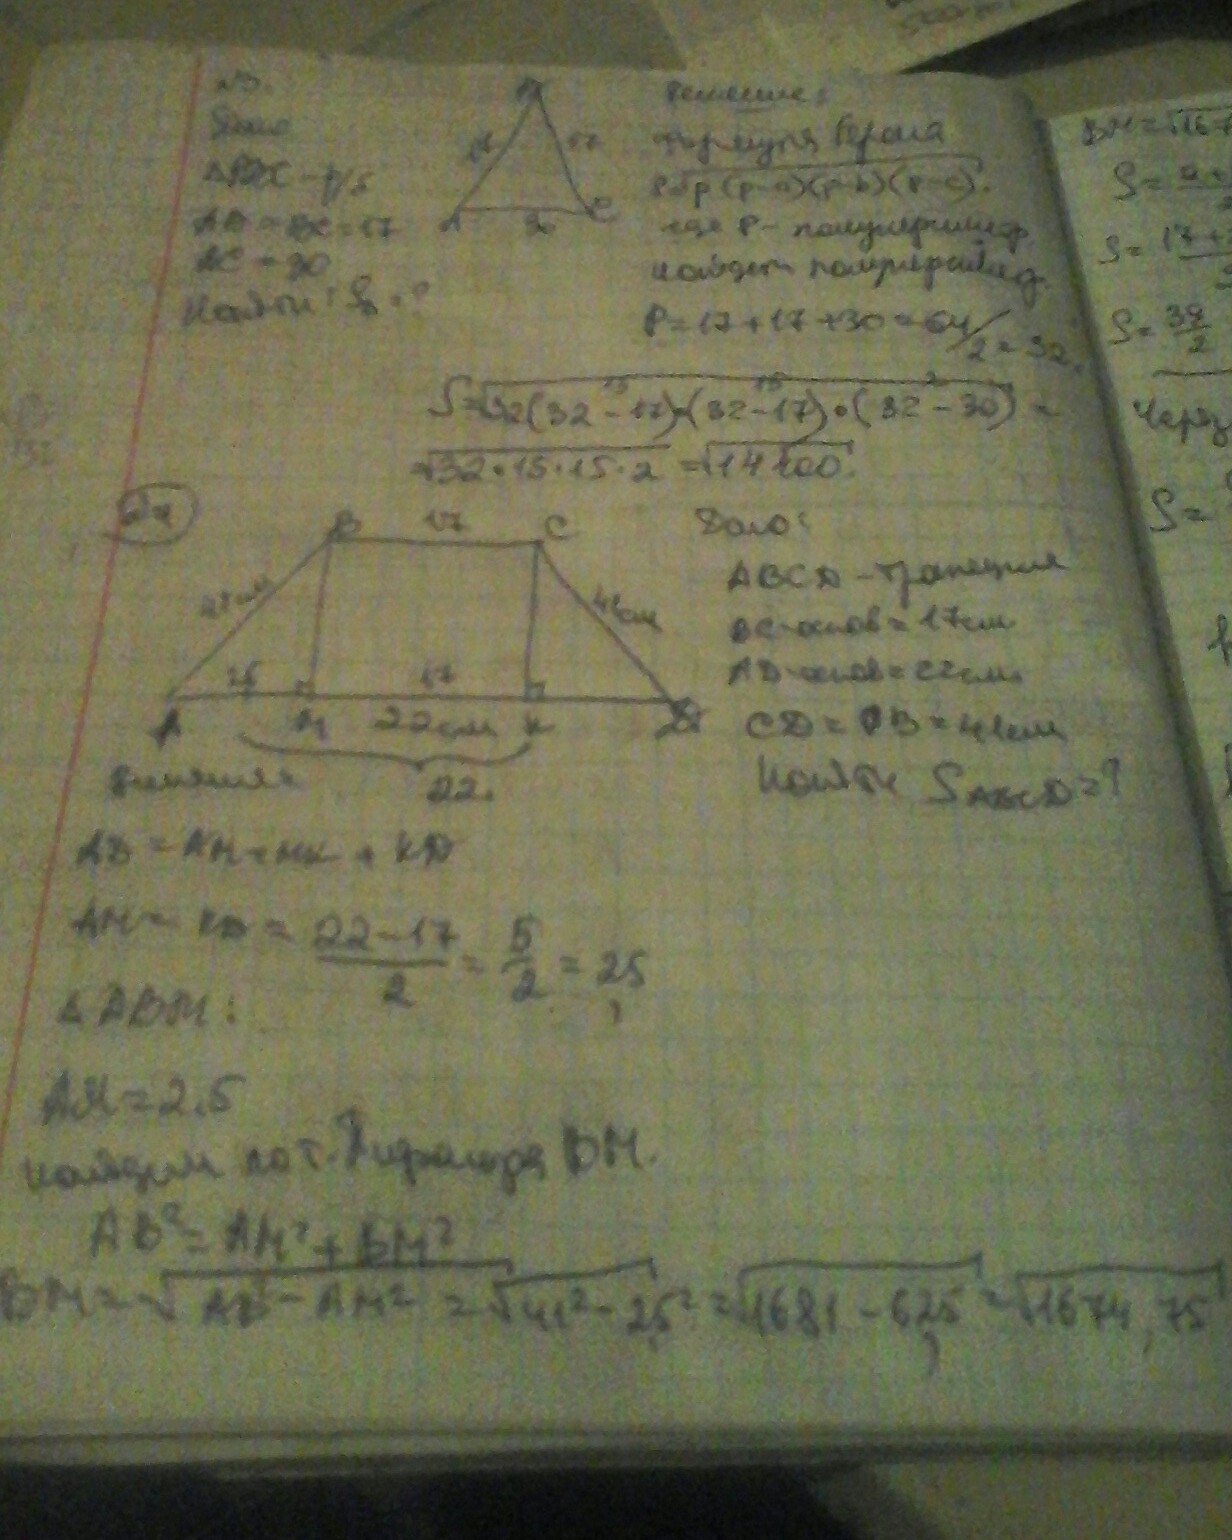 N3.
Дано
ABC - р/б
AB = BC = 17
AC = 30
Найти: S = ?
B
17
A
30
C
Решение:
Формула Герона
√p(p-a)(p-b)(p-c).
где P - полупериметр
найдем полупериметр
P = 17 + 17 + 30 = 64/2 = 32.
S = √32(32-17)•(32-17)•(32-30) =
15 15 2
= √32•15•15•2 = √14400.
24
B 17 C
41см
41см
25 17
A M 22см K D
22.
Дано:
ABCD - трапеция
BC-основ = 17см
AD-основ = 22см
CD = AB = 41см
Найти S ABCD = ?
Решение
AD = AM + MK + KD
AM = KD = 22-17/2 = 5/2 = 2,5
△ABM:
AM = 2.5
найдем по т. Пифагора BM.
AB² = AM² + BM²
BM = √AB² - AM² = √41² - 2,5² = √1681 - 6,25 = √1674,75
BM = √167
S =
S = 17+
S = 39/2
Через
S =